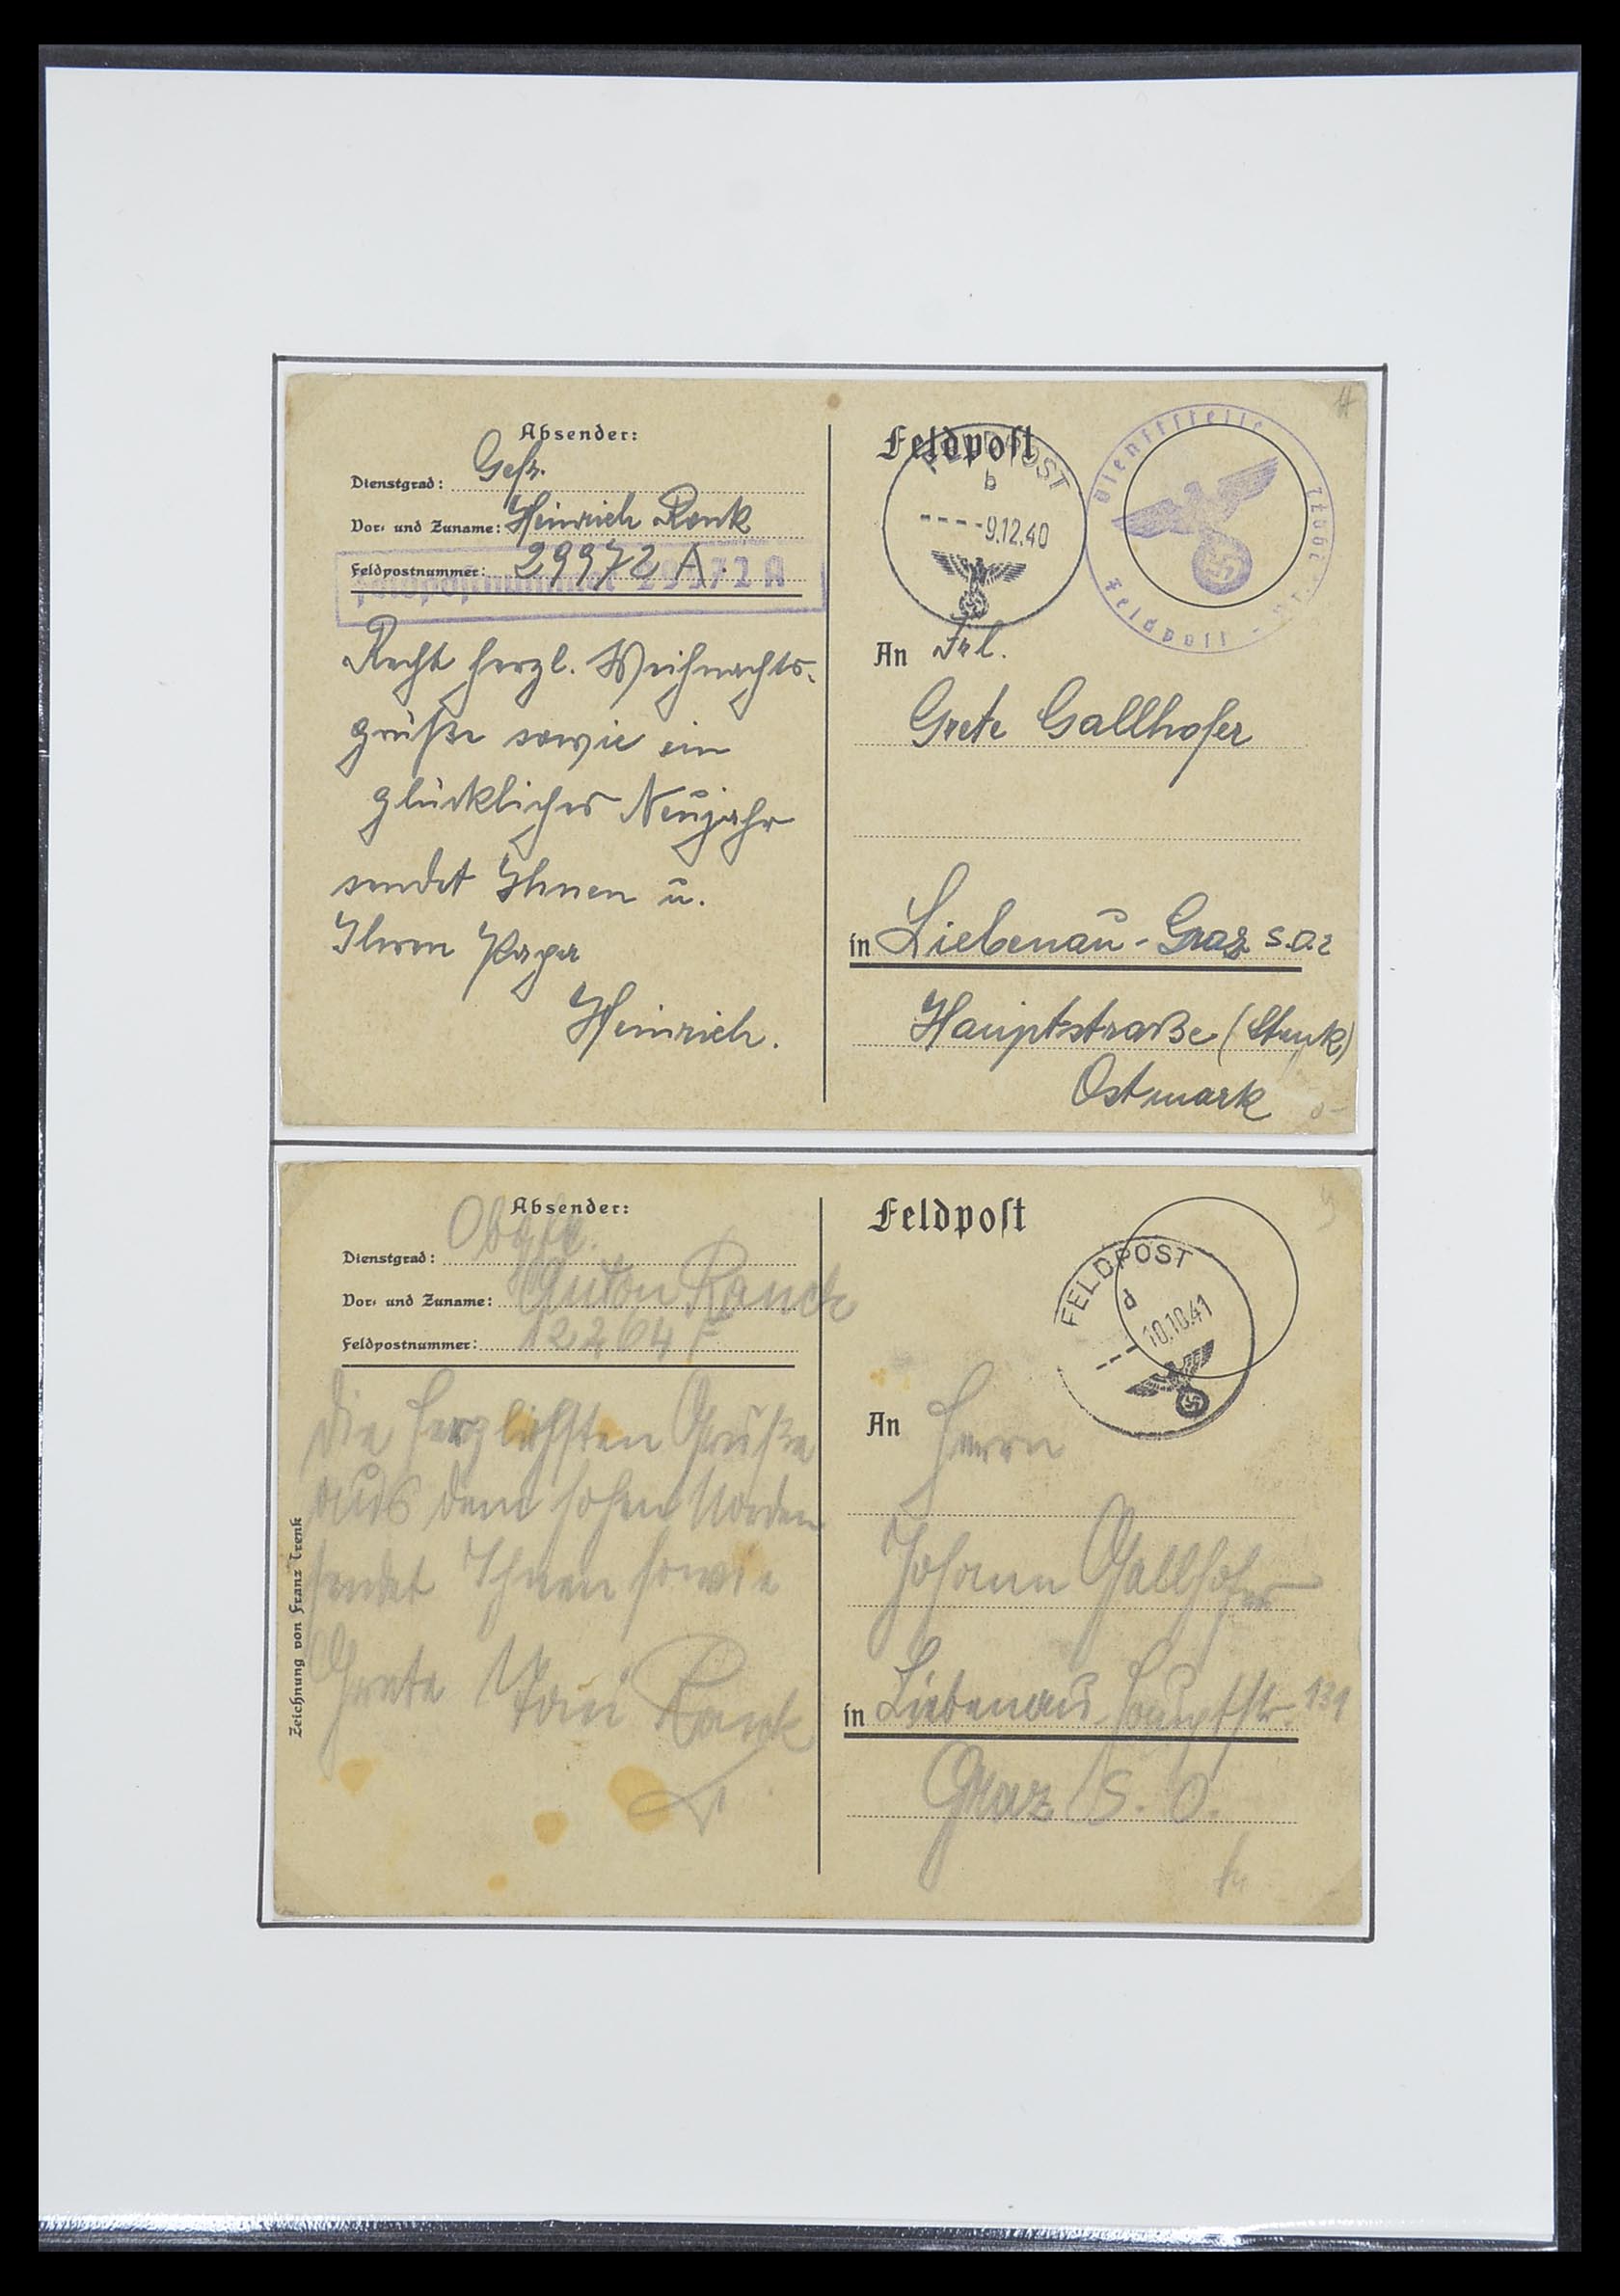 Absender:
Dienstgrad: Gefr.
Vor- und Zuname: Heinrich Rank
Feldpostnummer: 29972 A.
Feldpostnummer 29972 A
Recht herzl. Weihnachts-
grüße sowie ein
glückliches Neujahr
sendet Ihnen u.
Ihrem Papa
Heinrich.
Feldpost
FELDPOST
b
----9.12.40
Dienststelle
Feldpost - Nr.
An Frl.
Grete Gallhofer
in Liebenau-Graz S.O.2
Hauptstraße
Ostmark
Absender:
Dienstgrad: Obgfr.
Vor- und Zuname: Anton Ranck
Feldpostnummer: 12264 F
Die herzlichsten Grüße
aus dem hohen Norden
sendet Ihnen sowie
Grete Toni Rank
Zeichnung von Franz Trenk
Feldpost
FELDPOST
d
--- 10.10.41
An Herrn
Johann Gallhofer
in Liebenau Hauptstr. 131
Graz S. O.